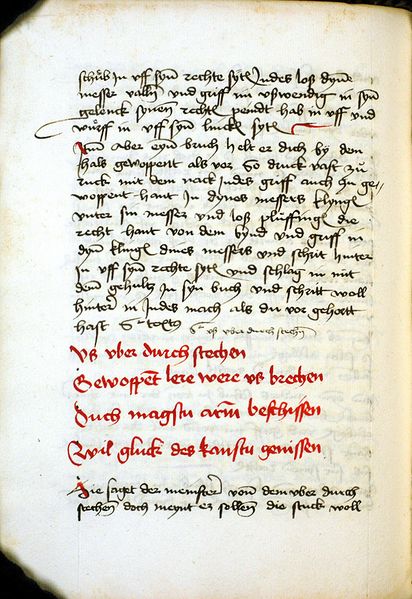 schub in uff syn rechte sytē Indes loß dyne
messer vallen und griff im ußwendig in syn
gelenck synen rechtē heindt hab in uff und
wurff in uff syn linckē sytē
Aber eyn bruch helt er dich by dem
hals gewoppent als vor So druck vast zu
ruck mit dem nack Indes griff auch mit ge-
woppent hant In dynes messers klynge
unter sin messer und loß die
recht hant von dem bynd und griff in
dyn klinge dines messers und schrit hinter
in uff syn rechte sytē und schlag in mit
dem gehultz in syn buch und schritt woll
hinter in Indes mach als du vor gehortt
hast uß vber durch stechen
Uß vber durch stechen
Gewoppent lere were uß brechen
Auch magstu arm beschissen
Wil gluck des kanstu genissen
Hie saget der meinster von dem vber durch
stechen doch meynt er sollen die stuck woll